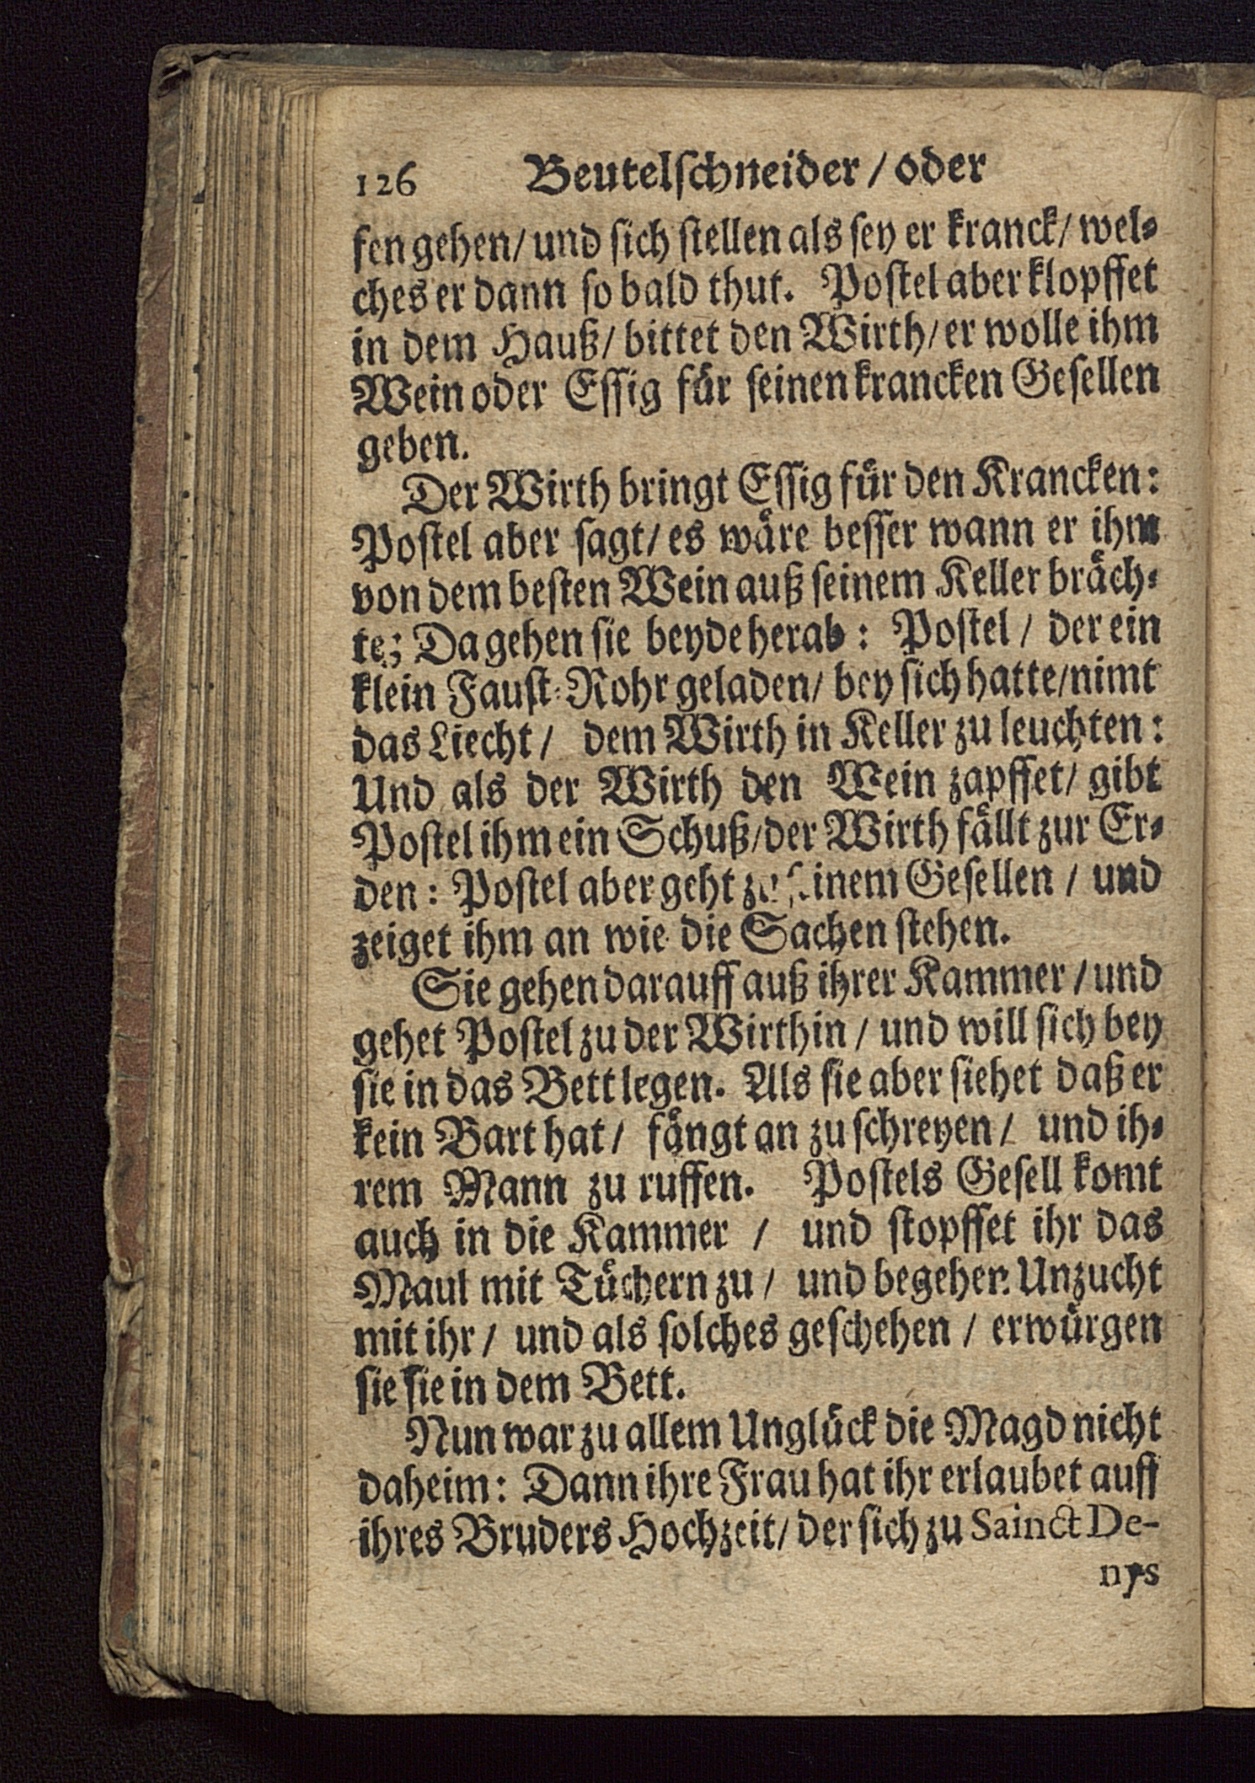 126 Beutelſchneider / oder
ſen gehen / und ſich ſtellen als ſey er kranck / wel⸗
ches er dann ſo bald thut. Poſtel aber klopffet
in dem Hauß / bittet den Wirth / er wolle ihm
Wein oder Eſſig für ſeinen krancken Geſellen
geben.
Der Wirth bringt Eſſig für den Krancken:
Poſtel aber ſagt / es wäre beſſer wann er ihm
von dem beſten Wein auß ſeinem Keller bräch⸗
te; Da gehen ſie beyde herab: Poſtel / der ein
klein Fauſt⸗Rohr geladen / bey ſich hatte / nimt
das Liecht / dem Wirth in Keller zu leuchten:
Und als der Wirth den Wein zapffet / gibt
Poſtel ihm ein Schuß / der Wirth fällt zur Er⸗
den: Poſtel aber geht zu ſeinem Geſellen / und
zeiget ihm an wie die Sachen ſtehen.
Sie gehen darauff auß ihrer Kammer / und
gehet Poſtel zu der Wirthin / und will ſich bey
ſie in das Bett legen. Als ſie aber ſiehet daß er
kein Bart hat / fängt an zu ſchreyen / und ih⸗
rem Mann zu ruffen. Poſtels Geſell komt
auch in die Kammer / und ſtopffet ihr das
Maul mit Tüchern zu / und begehen Unzucht
mit ihr / und als ſolches geſchehen / erwürgen
ſie ſie in dem Bett.
Nun war zu allem Unglück die Magd nicht
daheim: Dann ihre Frau hat ihr erlaubet auff
ihres Bruders Hochzeit / der ſich zu Sainct De-
nys